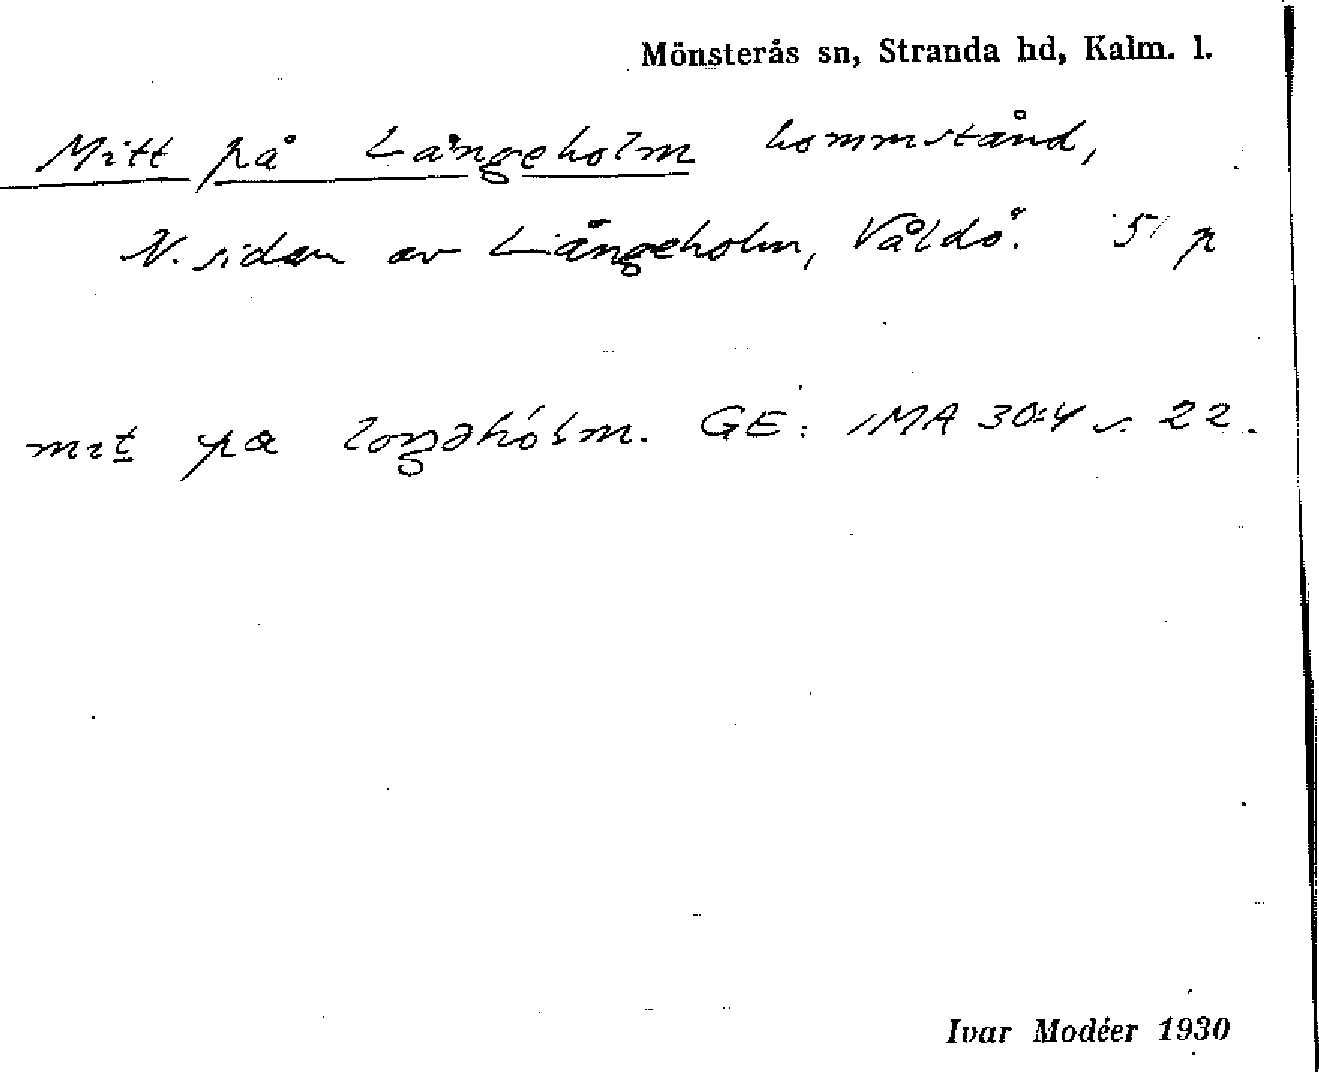 Mönsterås sn, Stranda hd, Kalm. l.
Mitt på Långeholm hommstånd,
N. sidan av Långeholm, Våldö. 51 p
mıt pa loŋəhólm. GE: IMA 30:4 s. 22.
Ivar Modéer 1930